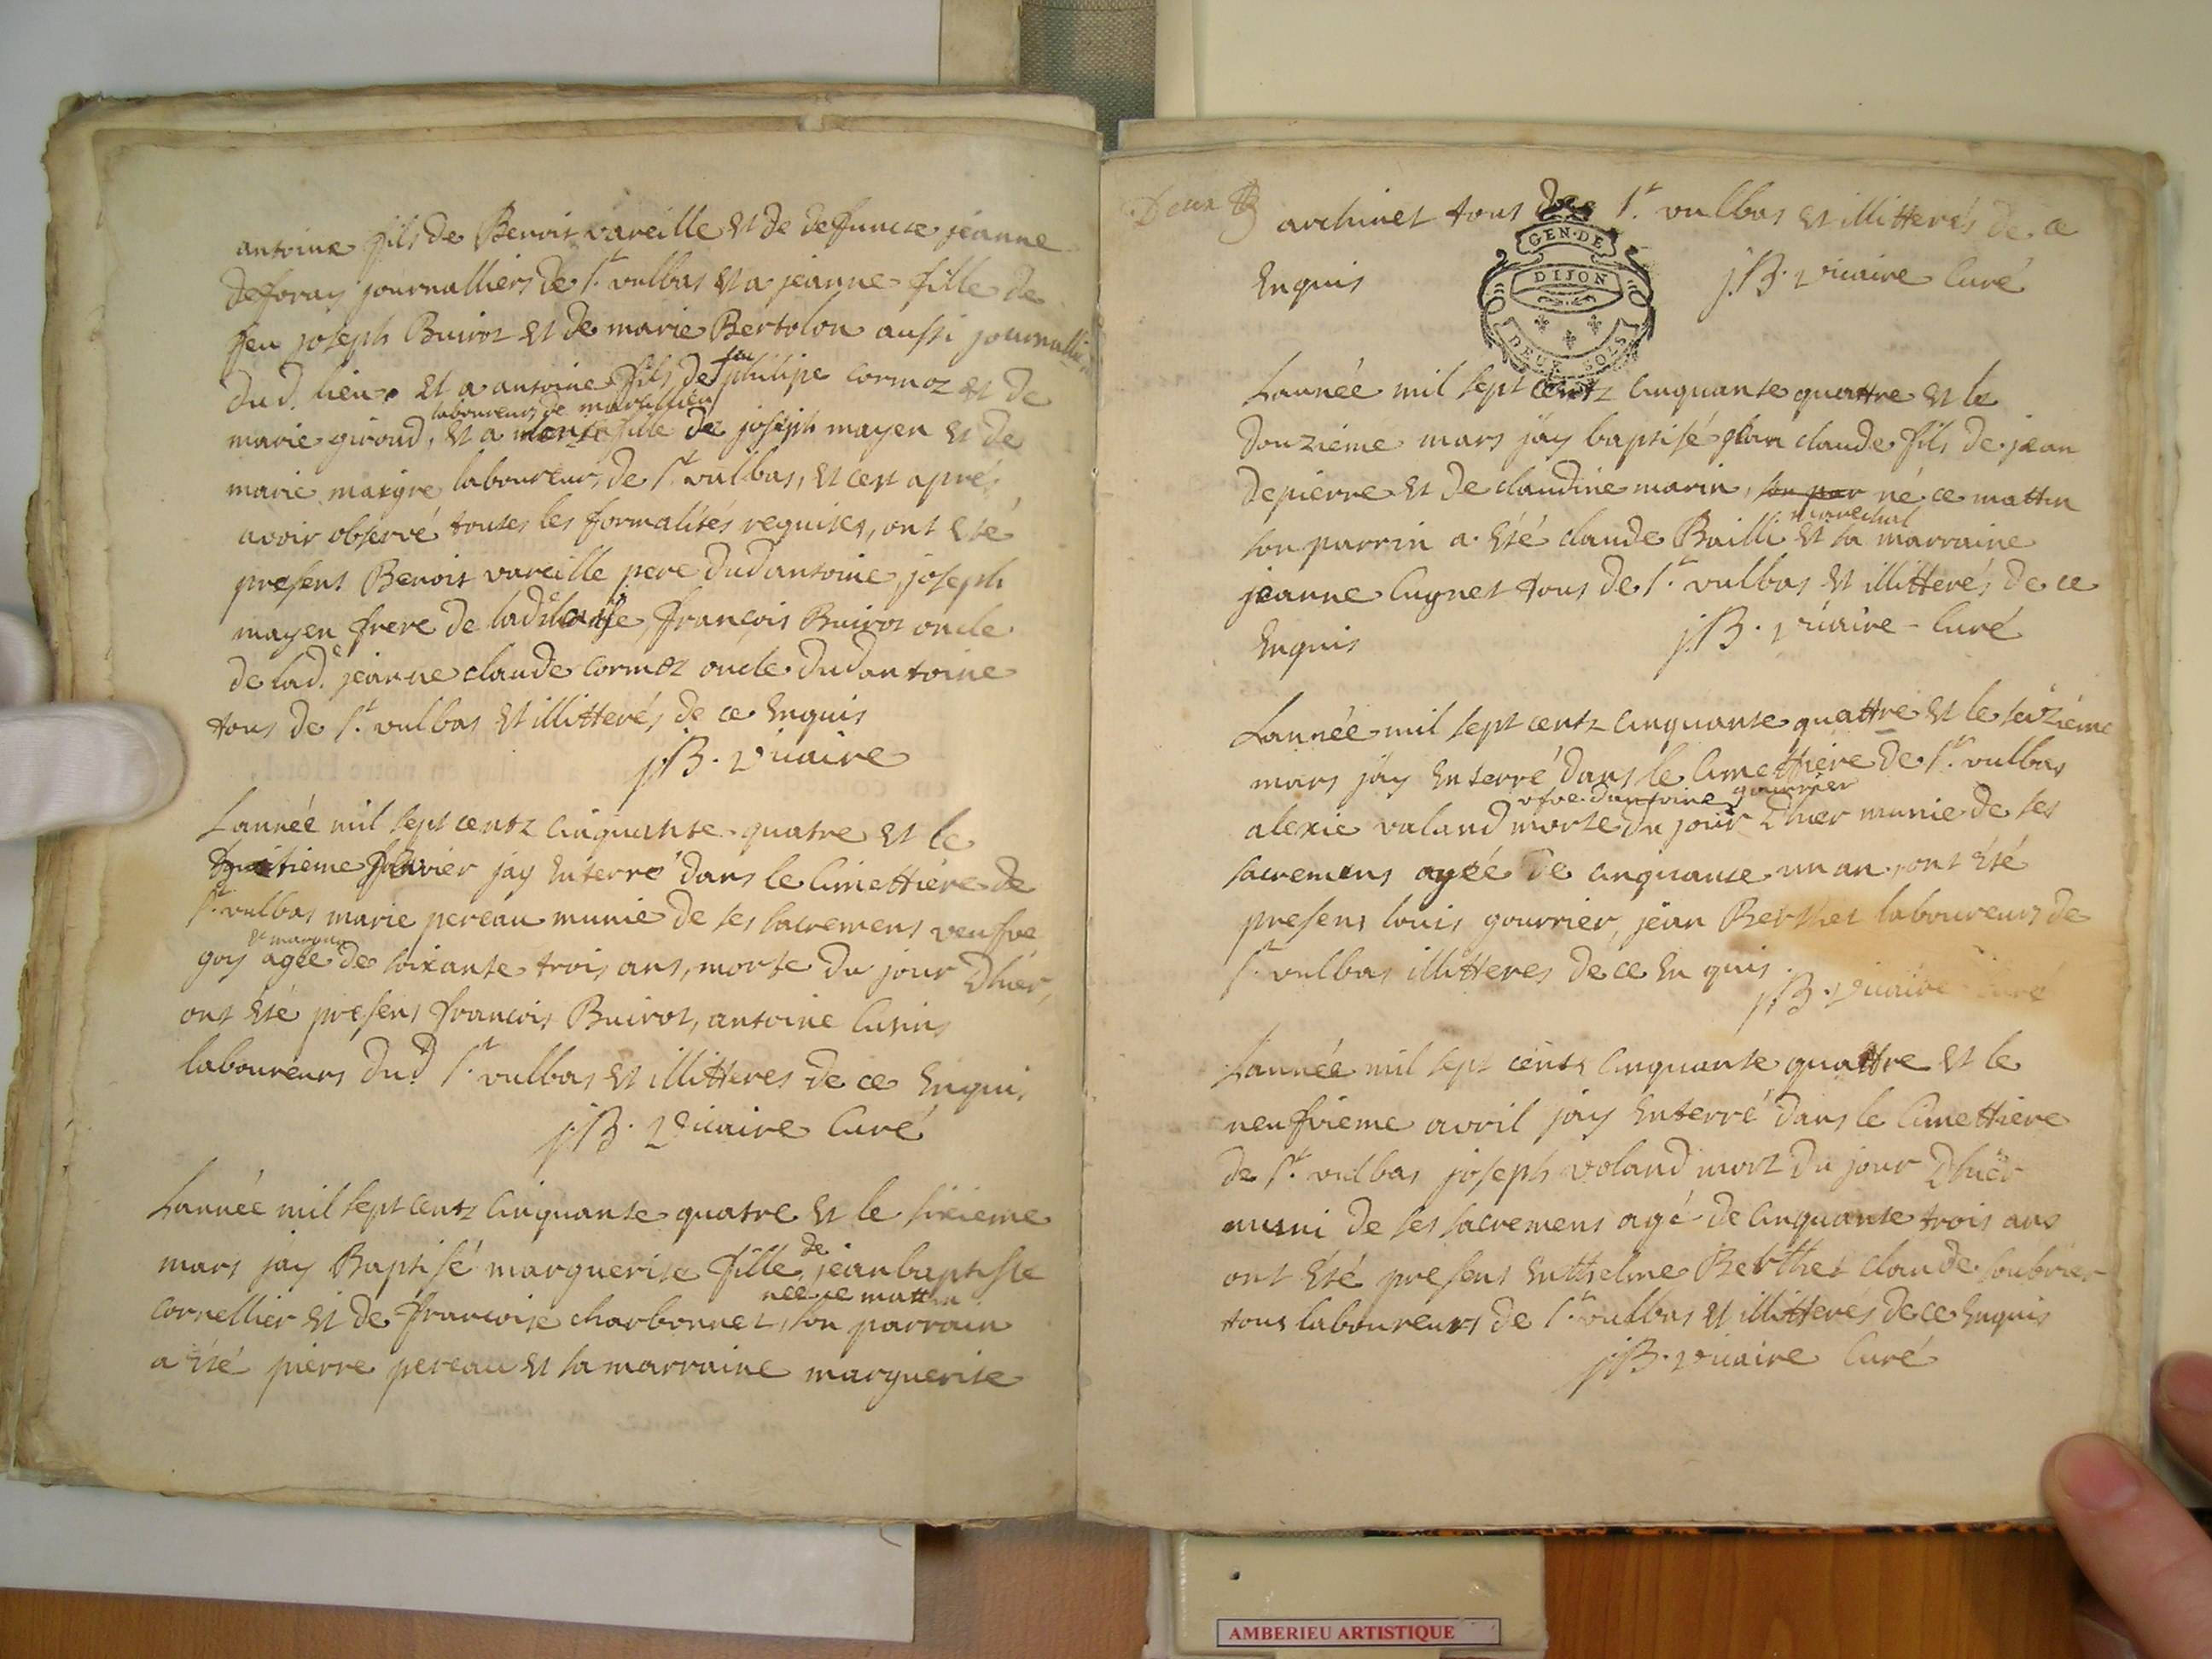 antoine fils de Benoit vareille et de deffuncte jeanne
Deforay journalliers de St. vulbas et a jeanne fille de
feu joseph Buirot et de marie Bertolon aussi journallier
dud. lieu et a antoine fils de feu philipe cormoz et de
laboureurs de
marie giroud, et a fille de joseph mayen et de
marie maigre laboureurs de St. vulbas, et cest aprés
avoir observé toutes les formalités requises, ont eté
presens Benoit vareille pere dud antoine, joseph
mayen frere de lad françois Buirot oncle
de lad.e jeanne claude cormoz oncle dud antoine
tous de St. vulbas et illitterés de ce enquis
j:B. vicaire
Lannée mil sept centz cinquante quatre et le
jay enterré dans le cimettiere de
St. vulbas marie pereau munie de ses sacremens veufve
goy agée de soixante trois ans, morte du jour Dhier,
ont eté presens francois Buirot, antoine cusins
laboureurs dud St. vulbas et illitteres de ce enquis
j:B. vicaire curé
Lannée mil sept centz cinquante quatre et le sixieme
mars jay Baptisé marguerite fille de jean baptiste
née ce mattin
cornellier et de francoise charbonnet, son parrain
a eté pierre pereau et sa marraine marguerite
Deux
archinet tous de St. vulbas et illitterés de ce
enquis j:B. vicaire curé
GEN·DE
DIJON
DEUX SOLS
Lannée mil sept centz cinquante quattre et le
douziéme mars jay baptisé claude fils de jean
depierre et de claudine marin, né ce mattin
marechal
son parrin a eté claude Bailli et sa marraine
jeanne cugnet tous de St. vulbas et illitterés de ce
enquis j:B. vicaire curé
Lannée mil sept centz cinquante quattre et le seizieme
mars jay enterré dans le cimettiere de St. vulbas
vfve dantoine gourrier
alexie valand morte du jour Dhier munie de ses
sacremens agée de cinquante un an, ont eté
presens louis gourrier, jean Berthet laboureurs de
St. vulbas illitteres de ce enquis
j:B. vicaire curé
Lannée mil sept centz cinquante quattre et le
neufvieme avril jay enterré dans le cimettiere
de St. vulbas joseph voland mort du jour Dhier
muni de ses sacremens agé de cinquante trois ans
ont eté presens enthelme Berthet claude soubrier
tous laboureurs de St. vulbas et illitterés de ce enquis
j:B. vicaire curé
AMBERIEU ARTISTIQUE